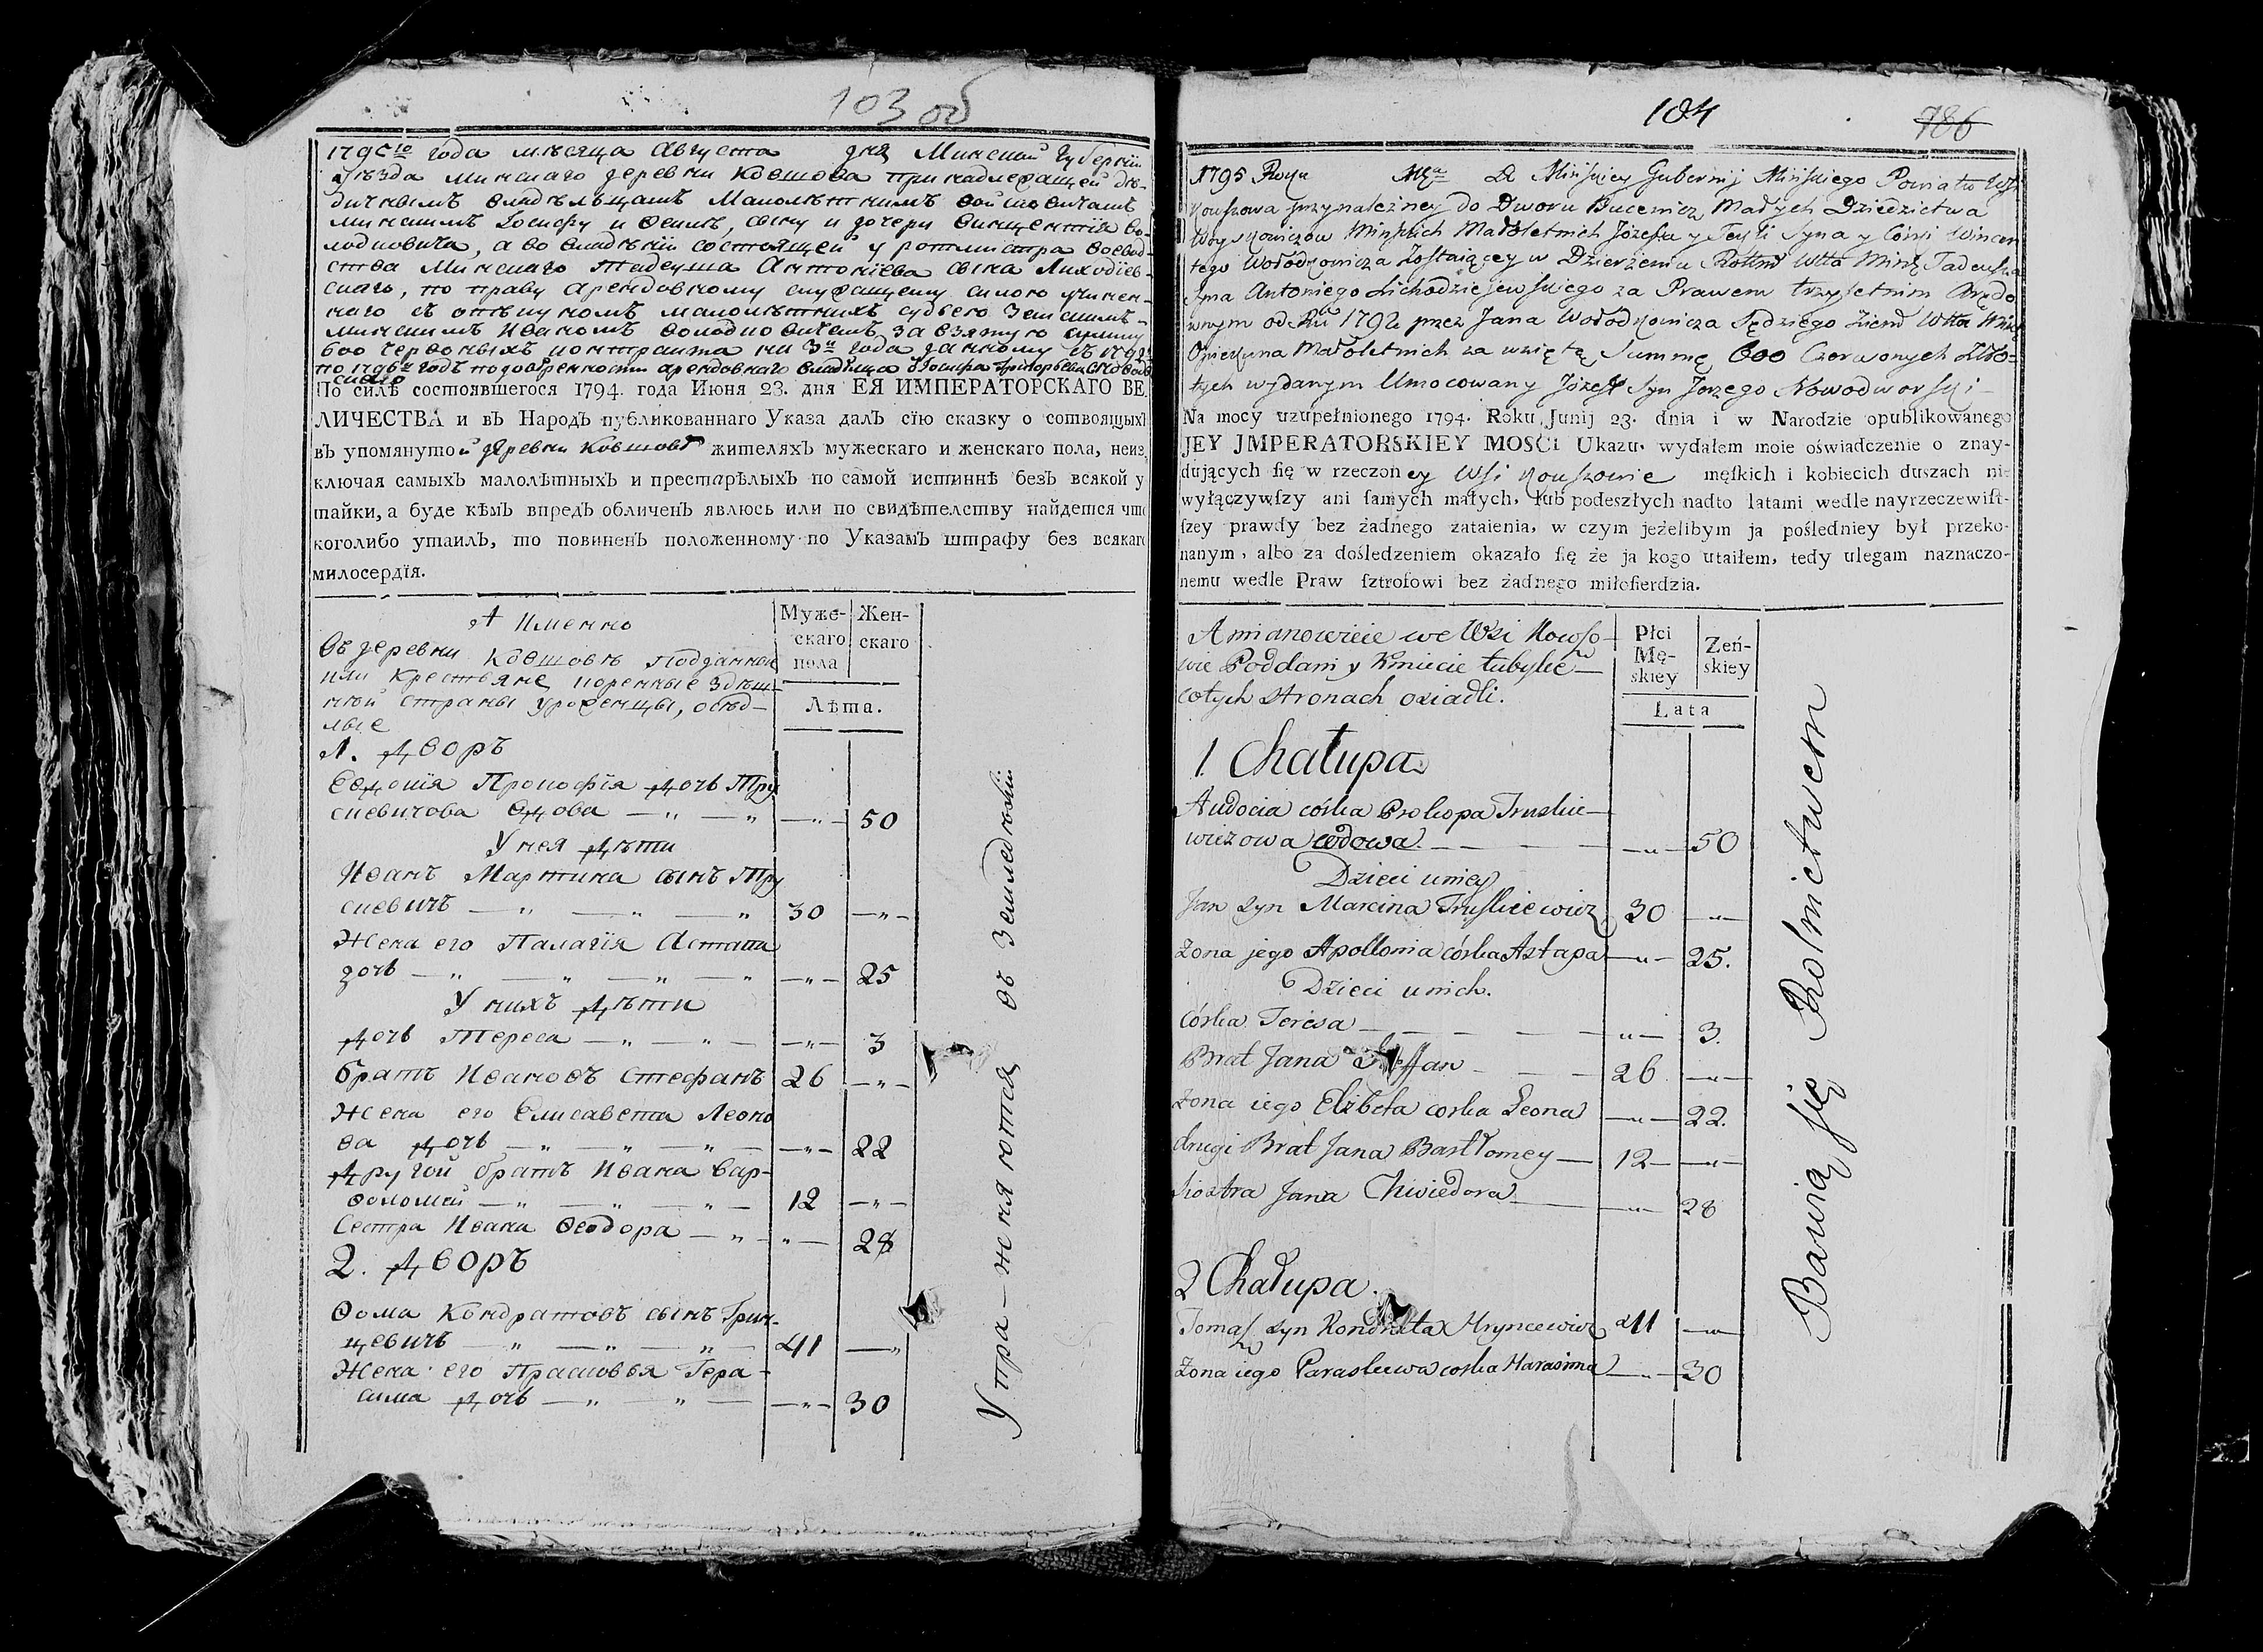 103 об
1795го года месяца Августа дня Минской Губернии
Уезда Минскаго деревни Ковшова принадлежащей дѣ-
дичнымъ владѣльцамъ Малолѣтнимъ
Минскимъ Іосифу и сыну и дочери Винцентія Во-
лодковича, а во владѣніи состоящей у ротмистра воевод-
ства Минскаго Тадеуша Антоніева сына Лиходіев-
скаго, по праву арендовному
наго съ опѣкуномъ малолѣтнихъ судьею Земскимъ
Минскимъ Иваномъ Володковичемъ за взятую сумму
600 червонныхъ контракта на 3и года данному съ 1792
по 1796й годъ арендовнаго владѣльца
По силѣ состоявшегося 1794. года Июня 23. дня ЕЯ ИМПЕРАТОРСКАГО ВЕ
ЛИЧЕСТВА и въ Народъ публикованнаго Указа далъ сїю сказку о сотвоящыхъ
въ упомянутой деревни Ковшовѣ жителяхъ мужескаго и женскаго пола, неиз
ключая самыхъ малолѣтныхъ и престарѣлыхъ по самой истиннѣ безъ всякой у
тайки, а буде кѣмъ впредъ обличенъ явлюсь или по свидѣтелству найдется что
коголибо утаилъ, то повиненъ положенному по Указамъ штрафу без всякаго
милосердїя.
А Именно
Въ деревни Ковшовѣ Подданные
или Крестьяне коренные здѣш-
ней страны уроженцы, осѣд-
лые
Муже-
скаго
пола
Жен-
скаго
Лѣта.
1. Дворъ
Евдокія Прокофія дочь Тру
скевичова вдова — " — " — " — 50
У нея Дѣти
Иванъ Мартина сынъ Тру
скевичъ — " — " — " 30 — " —
Жена его Палагія Астапа
дочь — " — " — " — " — " — 25
У нихъ Дѣти
Дочь Тереса — " — " — — " — 3
братъ Ивановъ Стефанъ 26 — " —
Жена его Елисавета Леоно
ва дочь — " — " — " — — " — 22
Другой братъ Ивана Вар-
ѳоломей — " — " — " — 12 — " —
Сестра Ивана Ѳеодора — " — " — 28
2. Дворъ
Ѳома Кондратовъ сынъ Грин-
цевичъ — " — " — " — 41 — "
Жена его Прасковья Гера-
сима дочь — " — " — — " — 30
Упражняются въ Земледѣліи
104
786
1795 Roku Mca D Minskiey Gubernij Minskiego Powiatu Wsi
Kowszowa przynależney do Dworu Bucewicz Małych Dziedzictwa
Woyskowiczow Minskich Małoletnich Józefa y Tekli Syna y Córki Wincen
tego Wołodkowicza Zostaiącey w Dzierżeniu Rottm Wtta Mińs Tadeusza
Syna Antoniego Lichodziejewskiego za Prawem trzyletnim Arędo
wnym od Ru 1792 przez Jana Wołodkowicza Sędziego Ziem Wtta Mińs
Opiekuna Małoletnich za wziętą Summę 600 Czerwonych Zło-
tych wydanym Umocowany Józef Syn Jerzego Nowodworski
Na mocy uzupełnionego 1794. Roku Junij 23. dnia i w Narodzie opublikowanego
JEY JMPERATORSKIEY MOSCI Ukazu, wydałem moie oświadczenie o znay-
dujących się w rzeczoney Wsi Kowszowie męskich i kobiecich duszach nie
wyłączywszy ani samych małych, lub podeszłych nadto latami wedle nayrzeczewist-
szey prawdy bez żadnego zataienia, w czym jeżelibym ja pośledniey był przeko-
nanym, albo za dośledzeniem okazało się że ja kogo utaiłem, tedy ulegam naznaczo-
nemu wedle Praw sztrofowi bez żadnego miłosierdzia.
A mianowicie we Wsi Kowszo-
wie Poddani y Kmiecie tubylce
cotych stronach osiadli.
Płci
Mę-
skiey
Żeń-
skiey
Lata
1. Chałupa
Audocia córka Prokopa Truskie-
wiczowa wdowa — — — " — 50
Dzieci uniey
Jan syn Marcina Truskiewicz 30 — " —
żona jego Apollonia córka Astapa — " — 25.
Dzieci unich.
Córka Teresa — — — — " — 3.
Brat Jana Steffan — — 26 — " —
żona iego Elżbeta corka Leona — " — 22.
drugi Brat Jana Bartłomey — 12 — — " —
siostra Jana Chwiedora — — " — 28
2 Chałupa.
Tomasz syn Kondrata Hryncewicz 41 — " —
żona iego Paraskiewa corka Harasima — " — 30
Bawią się Rolnictwem